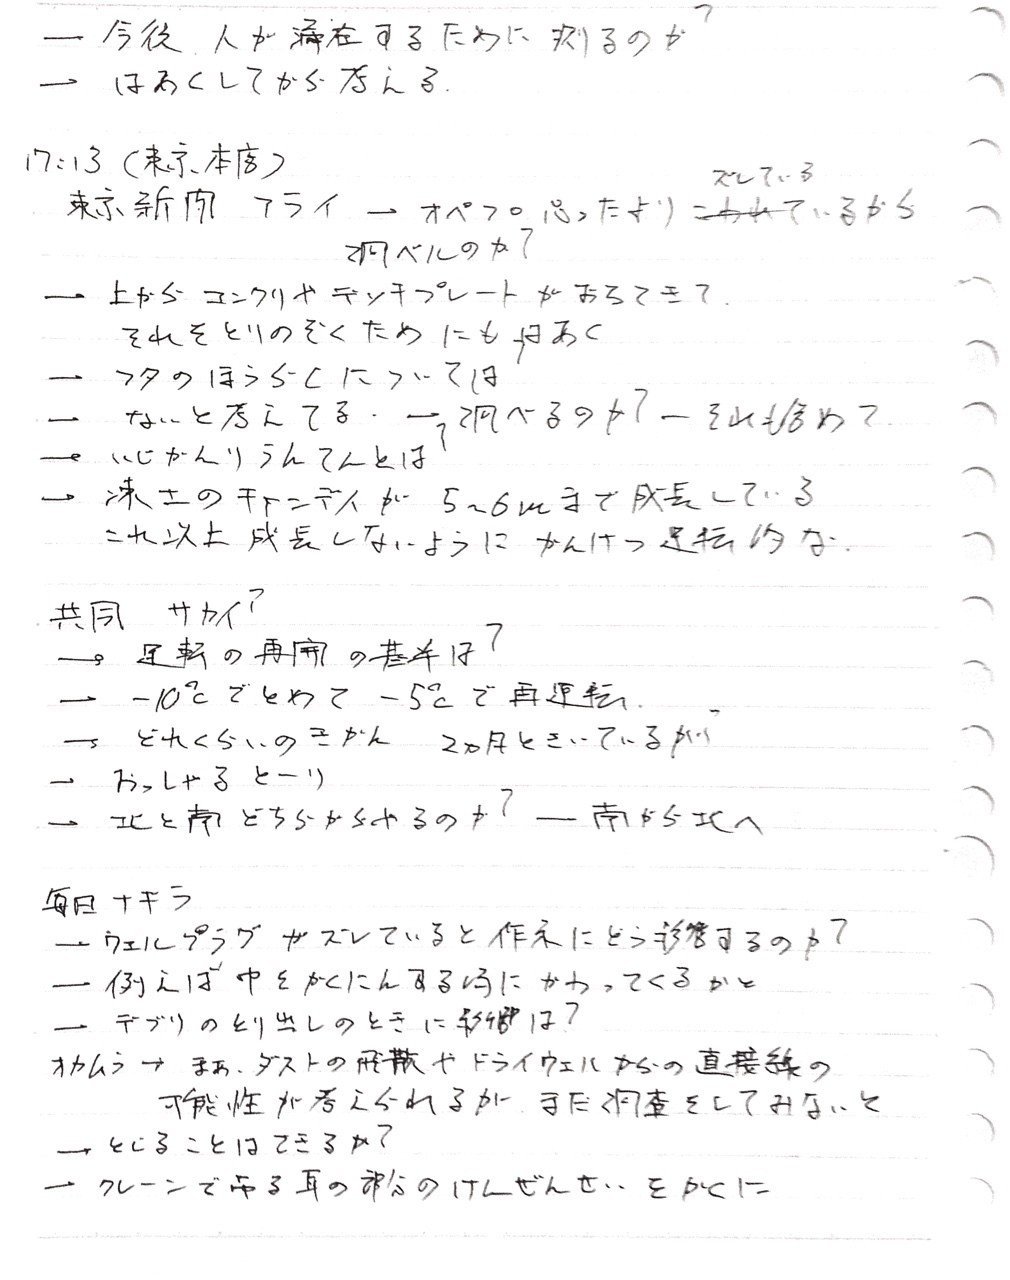 → 今後 人が滞在するために 測るのか?
→ はあくしてから考える.
17:13 (東京本店)
東京新聞 アライ → オペフロ 思ったより こわれているから
ズレている
調べルのか?
→ 上から コンクリや デッキプレートが おちてきて.
それをとりのぞくためにも はあく
→ フタのほうらくについては?
→ ないと考えてる. → 調べるのか? ― それも含めて
→ いじかんりうんてんとは?
→ 凍土のキャンディが 5〜6mまで成長している
これ以上 成長しないように かんけつ運転的な.
共同 サカイ?
→ 運転の再開の基準は?
→ -10℃でとめて -5℃で再運転.
→ どれくらいのきかん 2ヵ月ときいているが
→ おっしゃるとーり
→ 北と南どちらからやるのか? ― 南から北へ
毎日 ナキラ
→ ウェルプラグがズレていると 作業にどう影響するのか?
→ 例えば 中をかくにんする時に かわってくるかと
→ デブリのとり出しのときに影響は?
オカムラ → まあ、ダストの飛散や ドライウェルからの直接線の
可能性が考えられるが まだ調査をしてみないと
→ とじることはできるか?
→ クレーンで吊る耳の部分のけんぜんせいをかくに